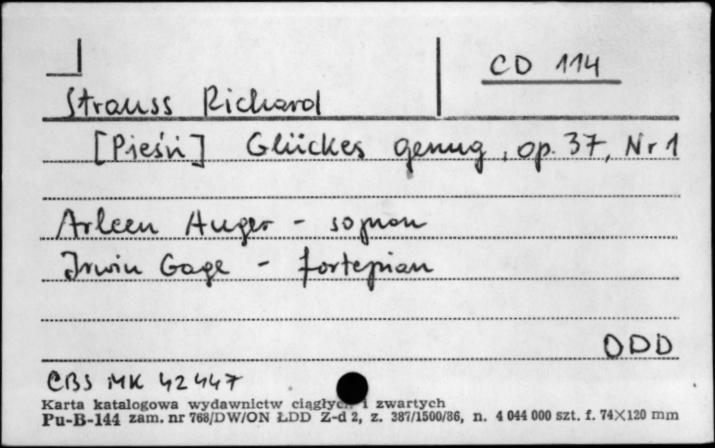 CD 114
Strauss Richard
[Pieśń] Glückes genug, op. 37, Nr 1
Arleen Auger - sopran
Irwin Gage - fortepian
ODD
CBS MK 42447
Karta katalogowa wydawnictw ciągłych i zwartych
Pu-B-144 zam. nr 768/DW/ON ŁDD Z-d 2, z. 387/1500/86, n. 4 044 000 szt. f. 74×120 mm